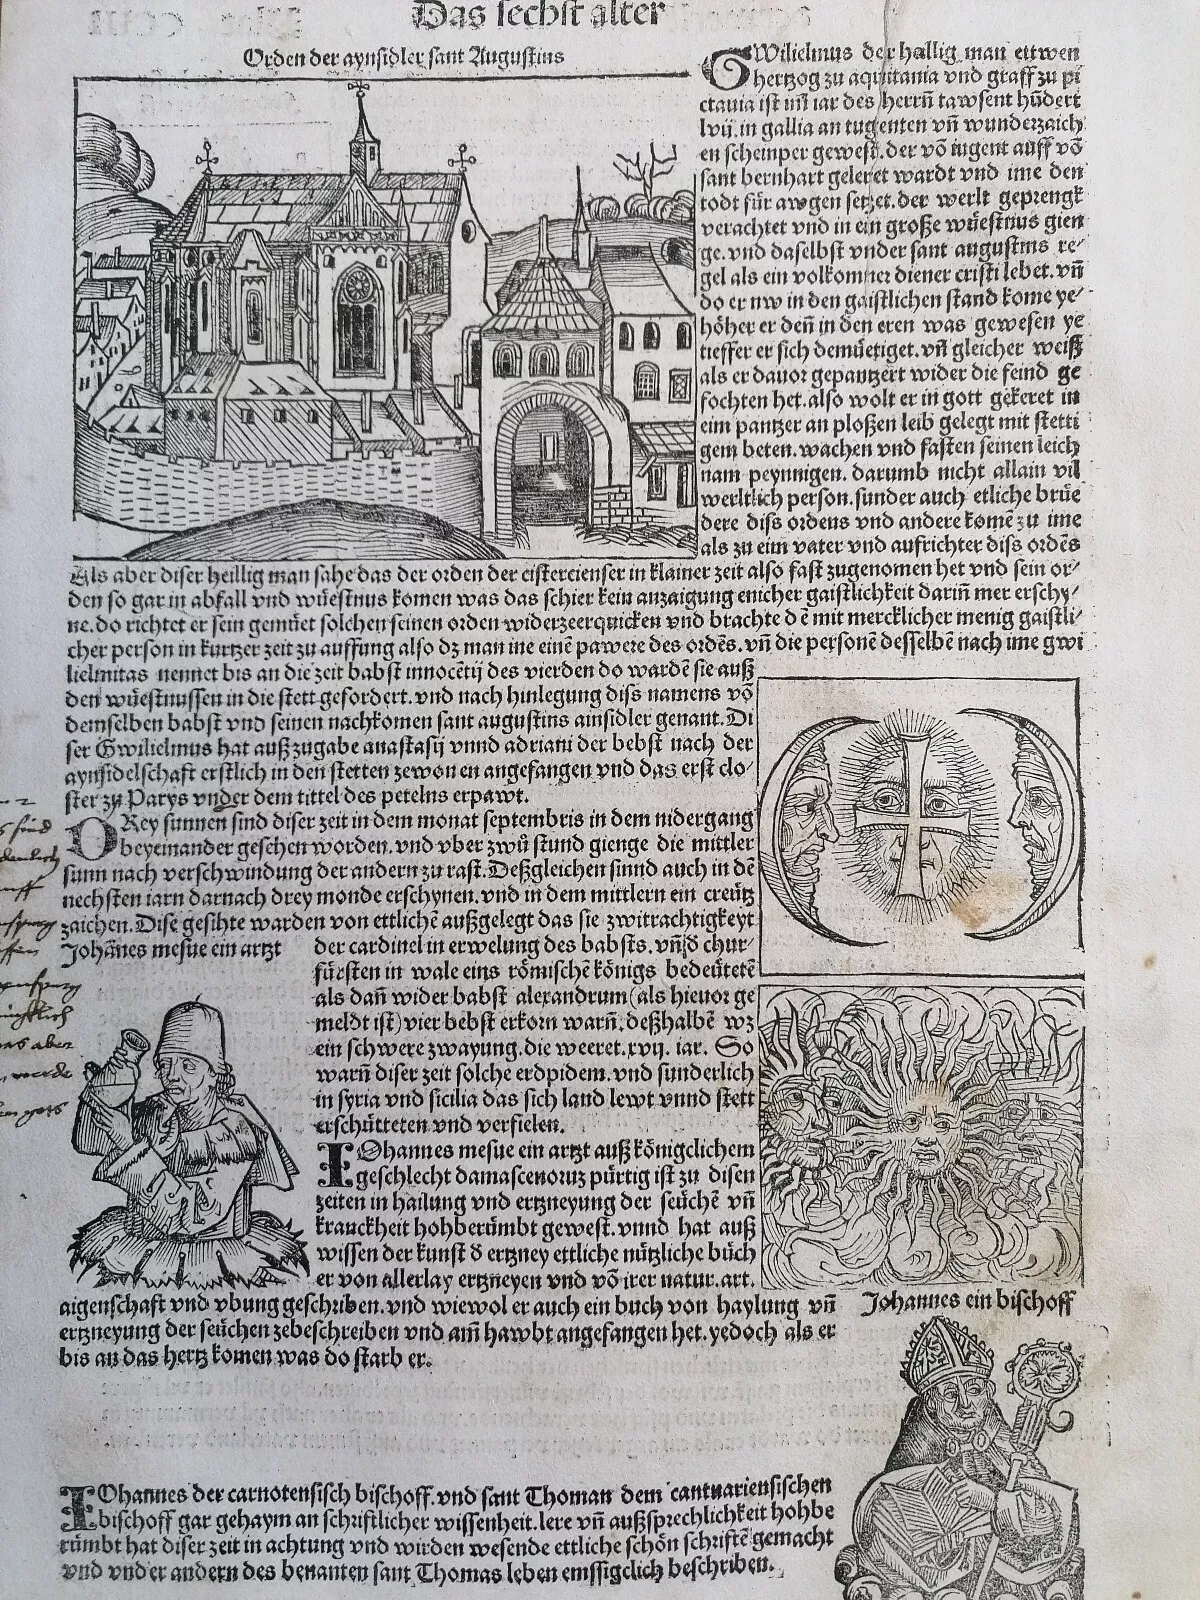 Das sechst alter
Orden der aynsidler sant Augustins
GWilielmus der hallig man ettwen
hertzog zu aquitania vnd graff zu pi
ctauia ist im iar des herrn tawsent hundert
lvij. in gallia an tugenten vn̄ wunderzaich
en scheinper gewest. der vō iugent auff vō
sant bernhart geleret wardt vnd ime den
todt für awgen setzet. der werlt geprengk
verachtet vnd in ein große wüestnus gien
ge. vnd daselbst vnder sant augustins re⸗
gel als ein volkomner diener cristi lebet. vn̄
do er nw in den gaistlichen stand kome ye⸗
höher er den̄ in den eren was gewesen ye
tieffer er sich demüetiget. vn̄ gleicher weiß
als er dauor gepantzert wider die feind ge
fochten het. also wolt er in gott gekeret in
eim pantzer an ploßen leib gelegt mit stetti
gem beten. wachen vnd fasten seinen leich
nam peynnigen. darumb nicht allain vil
werltlich person. sunder auch etliche brüe
dere diss ordens vnd andere komē zu ime
als zu eim vater vnd aufrichter diss ordēs
Als aber diser heillig man sahe das der orden der cistercienser in klainer zeit also fast zugenomen het vnd sein or⸗
den so gar in abfall vnd wüestnus komen was das schier kein anzaigung enicher gaistlichkeit darin̄ mer erschy⸗
ne. do richtet er sein gemüet solchen seinen orden widerzeerquicken vnd brachte dē mit mercklicher menig gaistli⸗
cher person in kurtzer zeit zu auffung also dz man ine einē pawere des ordēs. vn̄ die personē desselbē nach ime gwi
lielmitas nennet bis an die zeit babst innocētij des vierden do wardē sie auß
den wüestnussen in die stett gefordert. vnd nach hinlegung diss namens vō
demselben babst vnd seinen nachkomen sant augustins ainsidler genant. Di
ser Gwilielmus hat auß zugabe anastasij vnnd adriani der bebst nach der
aynsidelschaft erstlich in den stetten zewonen angefangen vnd das erst clo⸗
ster zu Parys vnder dem tittel des petelns erpawt.
DRey sunnen sind diser zeit in dem monat septembris in dem nidergang
beyeinander gesehen worden. vnd vber zwu stund gienge die mittler
sunn nach verschwindung der andern zu rast. Deßgleichen sinnd auch in dē
nechsten iarn darnach drey monde erschynen. vnd in dem mittlern ein creütz
zaichen. Dise gesihte warden von ettlichē außgelegt das sie zwitrachtigkeyt
der cardinel in erwelung des babsts. vn̄ d chur⸗
fürsten in wale eins römischē königs bedeütetē
als dan̄ wider babst alexandrum (als hieuor ge
meldt ist) vier bebst erkorn warn̄. deßhalbē wz
ein schwere zwayung. die weeret. xvij. iar. So
warn̄ diser zeit solche erdpidem. vnd sunderlich
in syria vnd sicilia das sich land lewt vnnd stett
erschütteten vnd verfielen.
Johānes mesue ein artzt
IOhannes mesue ein artzt auß königclichem
geschlecht damascenorum pürtig ist zu disen
zeiten in hailung vnd ertzneyung der seüchē vn̄
kranckheit hohberümbt gewest. vnnd hat auß
wissen der kunst d ertzney ettliche nützliche büch
er von allerlay ertzneyen vnd vō irer natur. art.
aigenschaft vnd vbung geschriben. vnd wiewol er auch ein buch von haylung vn̄
ertzneyung der seüchen zebeschreiben vnd am̄ hawbt angefangen het. yedoch als er
bis an das hertz komen was do starb er.
Johannes ein bischoff
IOhannes der carnotensisch bischoff. vnd sant Thoman dem cantuariensischen
bischoff gar gehaym an schriftlicher wissenheit. lere vn̄ außsprechlichkeit hohbe
rümbt hat diser zeit in achtung vnd wirden wesende ettliche schön schriftē gemacht
vnd vnder andern des benanten sant Thomas leben emssigclich beschriben.